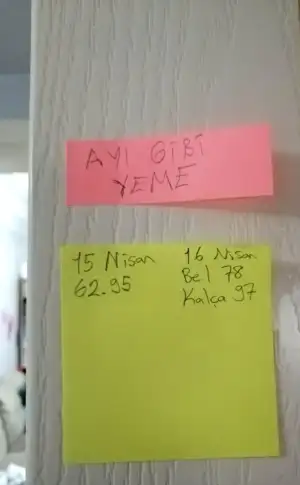 AYI GİBİ
YEME
15 Nisan
62.95
16 Nisan
Bel 78
Kalça 97